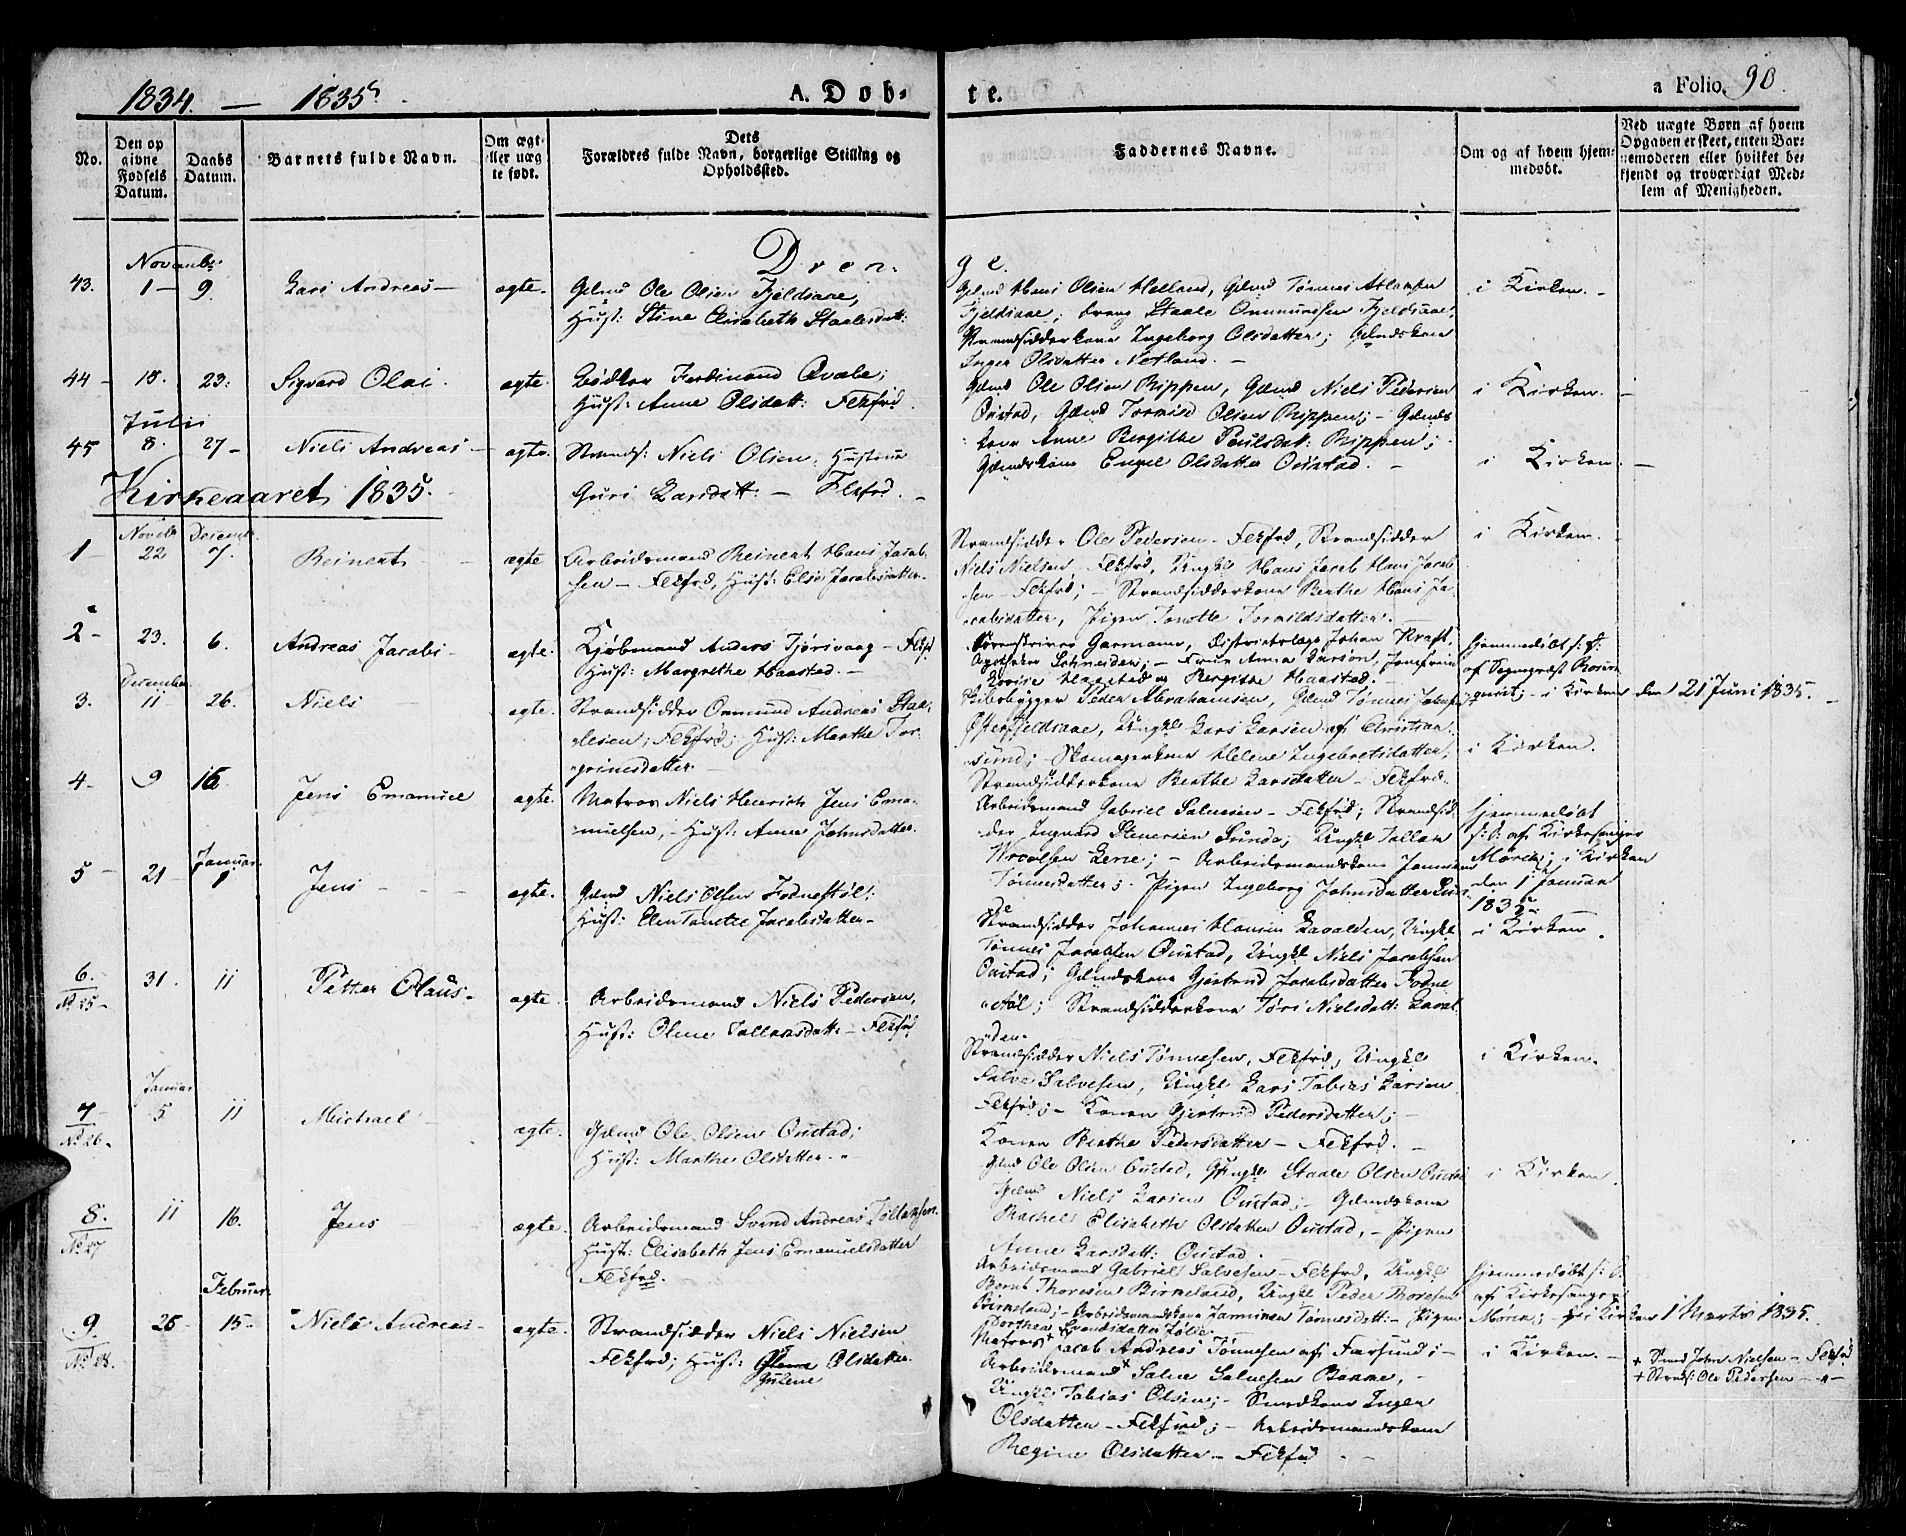 1834. — 1835.
A. Døb-
te.
a Folio. 90.
No.
Den op
givne
Fødsels
Datum.
Daabs
Datum.
Barnets fulde Navn.
Om ægt-
eller uæg
te født.
Dets
Forældres fulde Navn, borgerlige Stilling og
Opholdssted.
Faddernes Navne.
Om og af hvem hjem-
medøbt.
Ved uægte Børn af hvem
Opgaven er skeet, enten Bar-
nemoderen eller hvilket be-
kjendt og troværdigt Med-
lem af Menigheden.
Dren-
ge.
Novembr
43. 1 — 9. Lars Andreas — ægte. Gdmd Ole Olsen Fjeldsaae,
Hust: Stine Elisabeth Staalesdatt:
Gdmd Hans Olsen Helland, Gdmd Tønnes Atlaksen
Fjeldsaae; Dreng Staale Ommundsen Fjeldsaae,
Strandsidderkone Ingeborg Olsdatter; Gdmdskone
Inger Olsdatter Netland. —
i Kirken. —
44 — 18. 23. Sigvard Olai. ægte. Bødker Ferdinand Qvale;
Hust: Anne Olsdatt: Flekfrd.
Gdmd Ole Olsen Rippen, Gdmd Niels Pedersen
Oustad, Gdmd Tormod Olsen Rippen; — Gdmds
kone Anne Bergithe Poulsdatt: Rippen;
Gdmdskone Engel Olsdatter Oustad. —
i Kirken. —
Julii
45 8. 27 — Niels Andreas — ægte. Strands: Niels Olsen, Hustrue
Guri Larsdatt: — Flekfrd. —
i Kirken. —
Kirkeaaret 1835.
Novbr Decemb.
1 22 7. Reinert — ægte Arbeidsmand Reinert Hans Jacob-
sen — Flekfrd, Hust: Else Jacobsdatter —
Strandsidder Ole Pedersen — Flekfrd, Strandsidder
Niels Nielsen — Flekfrd, Ungkl Hans Jacob Hans Jacob
sen — Flekfrd; — Strandsidderkone Berthe Hans Ja-
cobsdatter, Pigen Tonette Tormildsdatter. —
i Kirken. —
2 — 23. 6. Andreas Jacob — ægte. Kjøbmand Anders Tjørsvaag — Flekf
Hust: Margrethe Haastad. —
Sorenskriver Garmann, Districtslæge Johan Kraft,
Apotheker Schneider; — Frue Anna Larson, Jomfruerne
Lovise Haastad og Bergithe Haastad. —
hjemmedøbt
af Sogneprest
i Kirken den 21 Juni 1835. —
December
3. 11 — 26. Niels — ægte. Strandsidder Ommund Andreas Staa-
lesen, Flekfrd; Hust: Marthe Tor-
grimsdatter —
Skibsbygger Peder Abrahamsen, Gdmd Tønnes
Østerfjeldsaae, Ungkl Lars Larsen af Christian-
sund; — Skomagerkone Helene Ingebretsdatter,
Strandsidderkone Berthe Larsdatter — Flekfrd.
i Kirken.
4 — 9 16. Jens Emanuel ægte. Matros Niels Henrich Jens Ema-
nuelsen, — Hust: Anne Johnsdatter.
Arbeidsmand Gabriel Salvesen — Flekfrd; Strandsid-
der Ingvard Stenersen Sunde; Ungkl Tallak
Lene; — Arbeidsmandskone
Tønnesdatter; Pigen Ingeborg Johnsdatter
hjemmedøbt
af Kirkesanger
Mörch; i Kirken
den 1 Januar
1835.
Januar.
5 — 21 — 1 Jens — — — ægte. Gdmd Niels Olsen Fodnestøl;
Hust: Elen Tomine Jacobsdatter —
Strandsidder Johannes Hansen Lavolden, Ungkl
Tønnes Jacobsen Oustad, Ungkl Niels Jacobsen
Oustad; Gdmdskone Gjertrud Jacobsdatter Fodne
støl; Strandsidderkone Tøri Nielsdatt: Lavol
den.
i Kirken.
6.
No 25 — 31. 11 Petter Olaus — ægte. Arbeidsmand Niels Pedersen,
Hust: Oline Tallaksdatt: — Flekfrd
Strandsidder Niels Tønnesen, Flekfrd, Ungkl
Salve Salvesen, Ungkl Lars Tobias Larsen
Flekfrd; — Konen Gjertrud Pedersdatter; —
Konen Berthe Pedersdatter — Flekfrd. —
i Kirken.
Januar
7
No 26 — 5 11 Michael — ægte. Gdmd Ole Olsen Oustad;
Hust: Marthe Olsdatter —
Gdmd Ole Olsen Oustad, Ungkl Staale Olsen Oustad
Gdmd Niels Larsen Oustad; — Gdmdskone
Rachel Elisabeth Olsdatter Oustad, — Pigen
Anne Larsdatt: Oustad. —
i Kirken.
8.
No 27 11 16. Jens ægte. Arbeidsmand Svend Andreas Tollaksen.
Hust: Elisabeth Jens Emanuelsdatter
Flekfrd. —
Arbeidsmand Gabriel Salvesen — Flekfrd, Ungkl
Bernt Thoresen Birkeland, Ungkl Peder Thoresen
Birkeland; — Arbeidsmandskone Tønnesdatt: — Pigen
Dorthea
hjemmedøbt
af Kirkesanger
Mörch; i Kirken 1 Marts 1835.
Februar
9.
No 28. 26 15 — Niels Andreas — ægte. Strandsidder Niels Nielsen
Flekfrd; Hust: Olene Olsdatter.
Gulene
Matros Jacob Andreas Tønnesen af Farsund; —
Arbeidsmand + Salve Salvesen —
Ungkl Tobias Olsen; — Smedkone Inger
Olsdatter — Flekfrd; — Arbeidsmandskone
Regine Olsdatter — Flekfrd —
i Kirken. —
+ Smed John Nielsen — Flekfrd
+ Strands: Ole Pedersen — " —